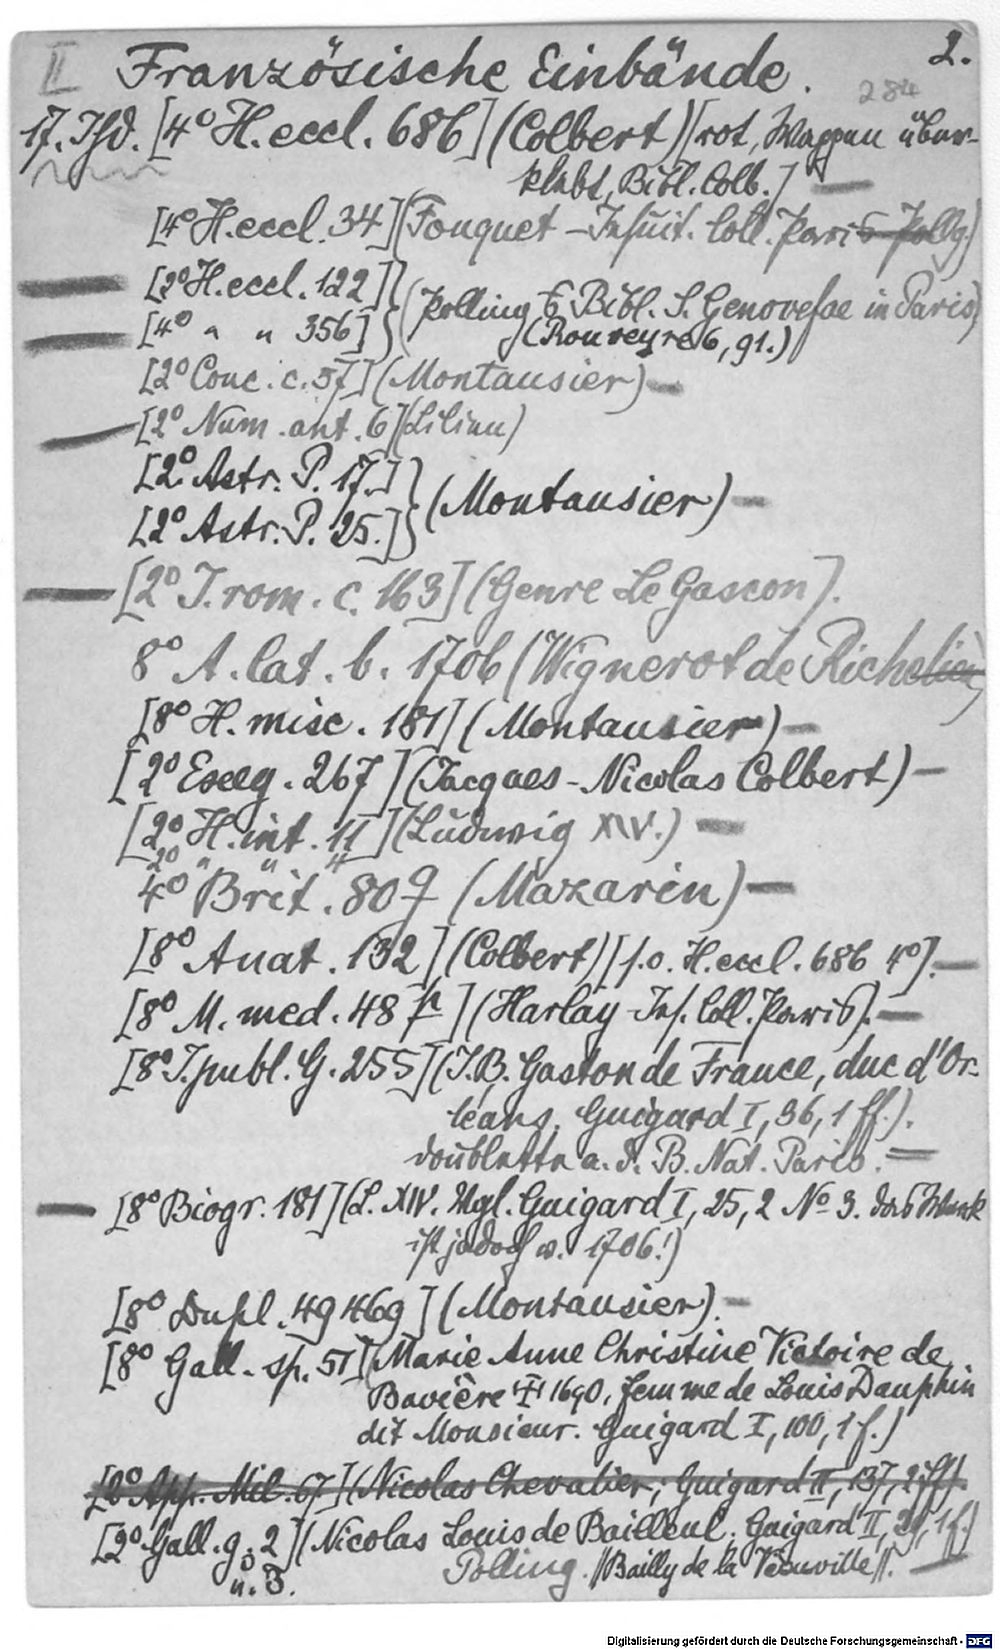 II Französische Einbände. 2.
284
17. Jhd. [4° H. eccl. 686] (Colbert) [rot, Wappen über-
klebt, Bibl. Colb.]
[4° H. eccl. 34] (Fouquet – Jesuit. Coll. Paris Pollg.)
[2° H. eccl. 122]
[4° " " 356] (Polling Bibl. S. Genovefae in Paris)
(Rouveyre 6, 91.)
[2° Conc. c. 57] (Montausier) –
[2° Num. ant. 6] (Lilien)
[2° Astr. P. 17.]
[2° Astr. P. 25.] (Montausier) –
[2° J. rom. c. 163] (Genre Le Gascon).
8° A. lat. b. 1706 (Wignerot de Richelieu)
[8° H. misc. 181] (Montausier) –
[2° Exeg. 267] (Jacques-Nicolas Colbert) –
[2° H. int. 11] (Ludwig XIV.) –
2° " " 4
4° Brit. 809 (Mazarin) –
[8° Anat. 132] (Colbert) [s.o. H. eccl. 686 4°]. –
[8° M. med. 48] (Harlay – Jes. Coll. Paris). –
[8° J. publ. G. 255] (J. B. Gaston de France, duc d'Or-
léans. Guigard I, 36, 1 ff.).
doublette a. d. B. Nat. Paris. =
[8° Biogr. 181] (L. XIV. Vgl. Guigard I, 25, 2 No 3. das Werk
ist jedoch v. 1706!)
[8° Dupl. 49469] (Montausier). –
[8° Gall. sp. 51] (Marie Anne Christine Victoire de
Bavière † 1690, femme de Louis Dauphin
dit Monsieur. Guigard I, 100, 1 f.)
App. Mil. 67] (Nicolas Chevalier; Guigard II, 137, 2 ff).
[2° Gall. g. 2] (Nicolas Louis de Bailleul. Guigard II, 29, 1 f.)
u. 3. Polling. // Bailly de la //. –
Digitalisierung gefördert durch die Deutsche Forschungsgemeinschaft - DFG